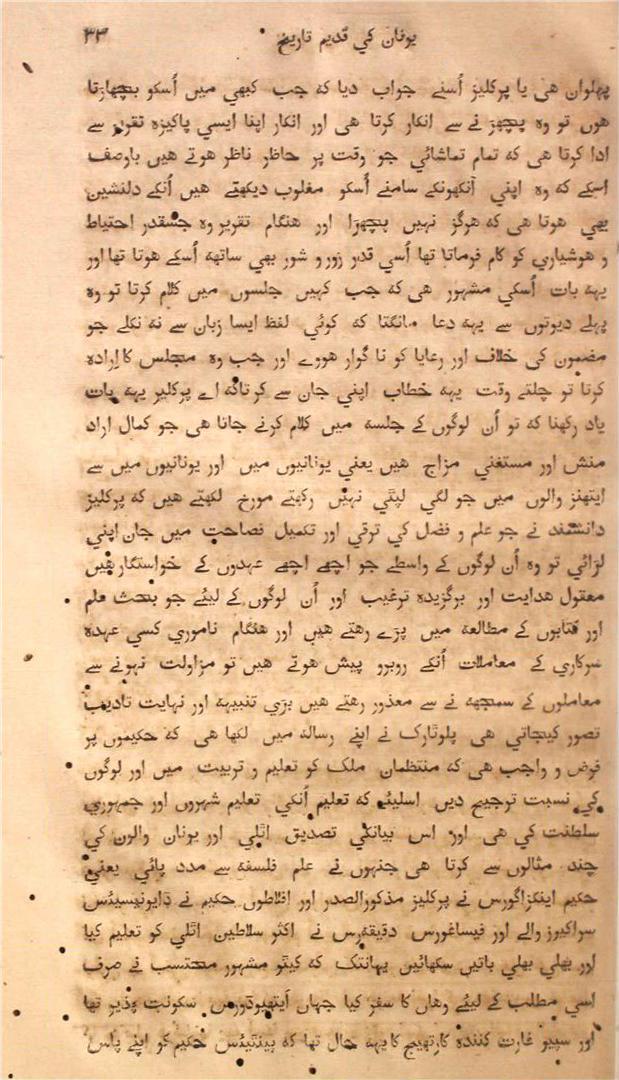 یونان کي قدیم تاریخ ۳۳
پہلوان ھی یا پرکلیز اُسنے جواب دیا کہ جب کبھي میں اُسکو پچھاڑتا
ھوں تو وہ پچھڑ نے سے انکار کرتا ھی اور انکار اپنا ایسي پاکیزہ تقریر سے
ادا کرتا ھی کہ تمام تماشائي جو وقت پر حاظر ناظر ھوتے ھیں باوصف
اسکے کہ وہ اپني آنکھونکے سامنے اُسکو مغلوب دیکھتے ھیں اُنکے دلنشین
یھي ھوتا ھی کہ ھرگز نہیں پچھڑا اور ھنگام تقریر وہ جسقدر احتیاط
و ھوشیاري کو کام فرماتا تھا اُسي قدر زور و شور بھي ساتھہ اُسکے ھوتا تھا اور
یہہ بات اُسکي مشہور ھی کہ جب کہیں جلسوں میں کلام کرتا تو وہ
پہلے دیوتوں سے یہہ دعا مانگتا کہ کوئي لفظ ایسا زبان سے نہ نکلے جو
مضمون کی خلاف اور رعایا کو نا گوار ھووے اور جب وہ مجلس کا اِرادہ
کرتا تو چلتے وقت یہہ خطاب اپني جان سے کرتاکہ اے پرکلیز یہہ بات
یاد رکھنا کہ تو اُن لوگوں کے جلسہ میں کلام کرنے جاتا ھی جو کمال اراد
منش اور مستغني مزاج ھیں یعني یونانیوں میں اور یونانیوں میں سے
ایتھنز والوں میں جو لگي لپٹي نہیں رکھتے مورخ لکھتے ھیں کہ پرکلیز
دانشمند نے جو علم و فضل کي ترقي اور تکمیل فصاحت میں جان اپني
لڑائي تو وہ اُن لوگوں کے واسطے جو اچھے اچھے عہدوں کے خواستگار ھیں
معقول ھدایت اور برگزیدہ ترغیب اور اُن لوگوں کے لیئے جو بحث علم
اور کتابوں کے مطالعہ میں پڑے رھتے ھیں اور ھنگام ناموري کسي عہدہ
سرکاري کے معاملات اُنکے روبرو پیش ھوتے ھیں تو مزاولت نہونے سے
معاملوں کے سمجھہ نے سے معذور رھتے ھیں بڑي تنبیہہ اور نہایت تادیب
تصور کیجاتي ھی پلوٹارک نے اپنے رسالہ میں لکھا ھی کہ حکیموں پر
فرض و واجب ھی کہ منتظمان ملک کو تعلیم و تربیت میں اور لوگوں
کي نسبت ترجیح دیں اسلیئے کہ تعلیم اُنکي تعلیم شہروں اور جمہوري
سلطنت کي ھی اور اس بیانکي تصدیق اٹلي اور یونان والون کي
چند مثالوں سے کرتا ھی جنہوں نے علم فلسفہ سے مدد پائي یعني
حکیم اینکزاگورس نے پرکلیز مذکورالصدر اور افلاطوں حکیم نے ڈایونیسیئس
سراکیوز والے اور فیساغورس دقیقہ رس نے اکثر سلاطین اٹلي کو تعلیم کیا
اور بھلي بھلي باتیں سکھائیں یہانتک کہ کیٹو مشہور محتسب نے صرف
اسي مطلب کے لیئے وھاں کا سفر کیا جہاں ایتھیوڈورس سکونت پذیر تھا
اور سیپیو غارت کنندہ کارتھیج کا یہہ حال تھا کہ پینٹیئس حکیم کو اپنے پاس